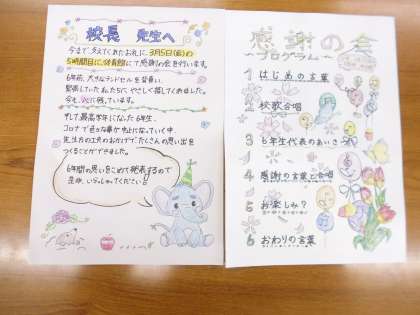 校長 先生へ
今まで支えてくれたお礼に、3月5日(金)の
5時間目に、体育館にて感謝の会を行います。
6年前、大きなランドセルを背負い、
緊張していた私たちに、やさしく接してくれました。
今も心に残っています。
そして、最高学年になった6年生。
コロナで色々な事が中止になっていく中、
先生方の工夫のおかげでたくさんの思い出を
つくることができました。
6年間の思いをこめて発表するので
是非、いらしゃてください!!
感謝の会
~プログラム~
1 はじめの言葉
2 校歌合唱
3 6年生代表のあいさつ
4 感謝の言葉と合唱
5 お楽しみ?
6 おわりの言葉